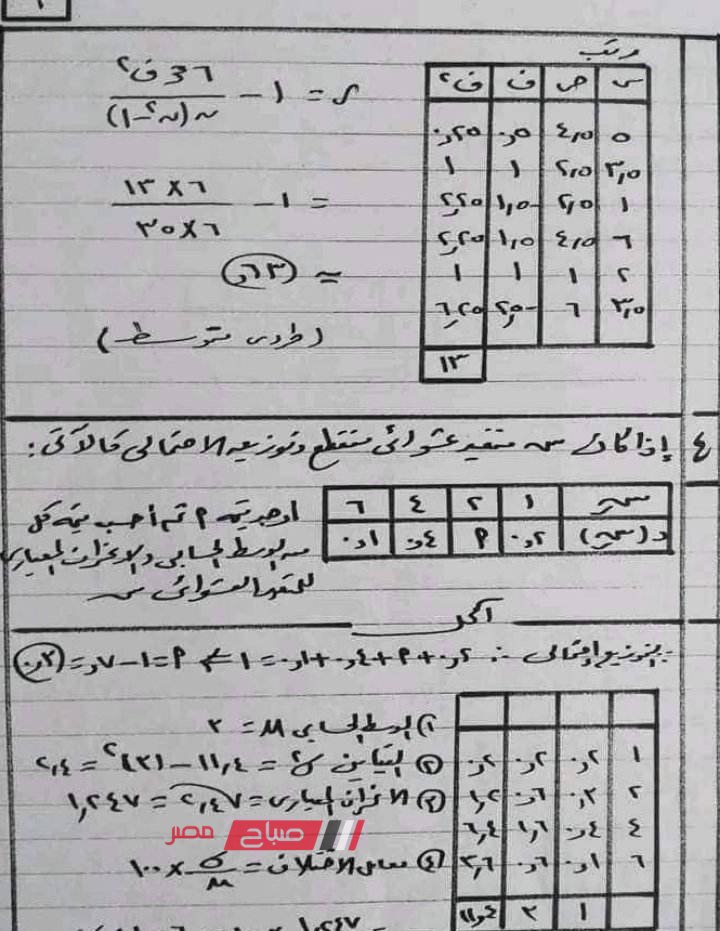 ١
رتب
س ص ف ف٢
٥ ٤,٥ ٠,٥ ٠,٢٥
٣,٥ ٢,٥ ١ ١
١ ٢,٥ -١,٥ ٢,٢٥
٦ ٤,٥ ١,٥ ٢,٢٥
٢ ١ ١ ١
٣,٥ ٦ -٢,٥ ٦,٢٥
١٣
ر = ١ - ٦ مجـ ف٢ / ن(ن٢ - ١)
= ١ - ٦ × ١٣ / ٦ × ٣٥
≃ ٠,٦٣
(طردى متوسط)
٤ إذا كان س متغير عشوائى متقطع وتوزيعه الاحتمالى كالآتى:
سـر ١ ٢ ٤ ٦
د(سـر) ٠,٢ م ٠,٤ ٠,١
أوجد قيمة م ثم أحسب قيمة كل
من الوسط الحسابى والانحراف المعيارى
للمتغير العشوائى س
الحل
∵ التوزيع احتمالى ∴ ٠,٢ + م + ٠,٤ + ٠,١ = ١ ⇐ م = ١ - ٠,٧ = ٠,٣
١ ٠,٢ ٠,٢ ٠,٢
٢ ٠,٣ ٠,٦ ١,٢
٤ ٠,٤ ١,٦ ٦,٤
٦ ٠,١ ٠,٦ ٣,٦
١ ٣ ١١,٤
١ الوسط الحسابى μ = ٣
٢ التباين σ٢ = ١١,٤ - (٣)٢ = ٢,٤
٣ الانحراف المعيارى = √٢,٤٧ = ١,٢٤٧
٤ معامل الاختلاف = σ / μ × ١٠٠
صباح مصر
١,٢٤٧